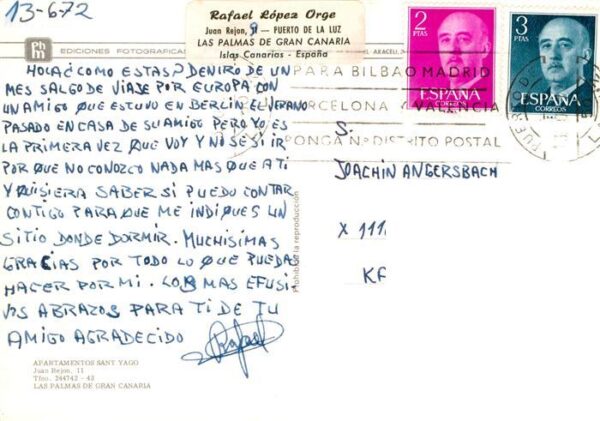 13-6-72
Rafael López Orge
Juan Rejon, 91 - PUERTO DE LA LUZ
LAS PALMAS DE GRAN CANARIA
Islas Canarias - España
phm
EDICIONES FOTOGRAFICAS
ARACELI,
HOLA¿COMO ESTAS? DENTRO DE UN
MES SALGO DE VIAJE POR EUROPA CON
UN AMIGO QUE ESTUVO EN BERLIN EL VERANO
PASADO EN CASA DE SU AMIGO PERO YO ES
LA PRIMERA VEZ QUE VOY Y NO SE SI IR
POR QUE NO CONOZCO NADA MAS QUE A TI
Y QUISIERA SABER SI PUEDO CONTAR
CONTIGO PARA QUE ME INDIQUES UN
SITIO DONDE DORMIR. MUCHISIMAS
GRACIAS POR TODO LO QUE PUEDAS
HACER POR MI. LOS MAS EFUSI-
VOS ABRAZOS PARA TI DE TU
AMIGO AGRADECIDO
Rafael
APARTAMENTOS SANT YAGO
Juan Rejon, 11
Tfno. 244742 - 43
LAS PALMAS DE GRAN CANARIA
Prohibida la reproducción
2
PTAS
ESPAÑA
CORREOS
3
PTAS
ESPAÑA
CORREOS
PARA BILBAO MADRID
BARCELONA Y VALENCIA
PONGA Nº DISTRITO POSTAL
S.
JOACHIN ANGERSBACH
X 111.
KF